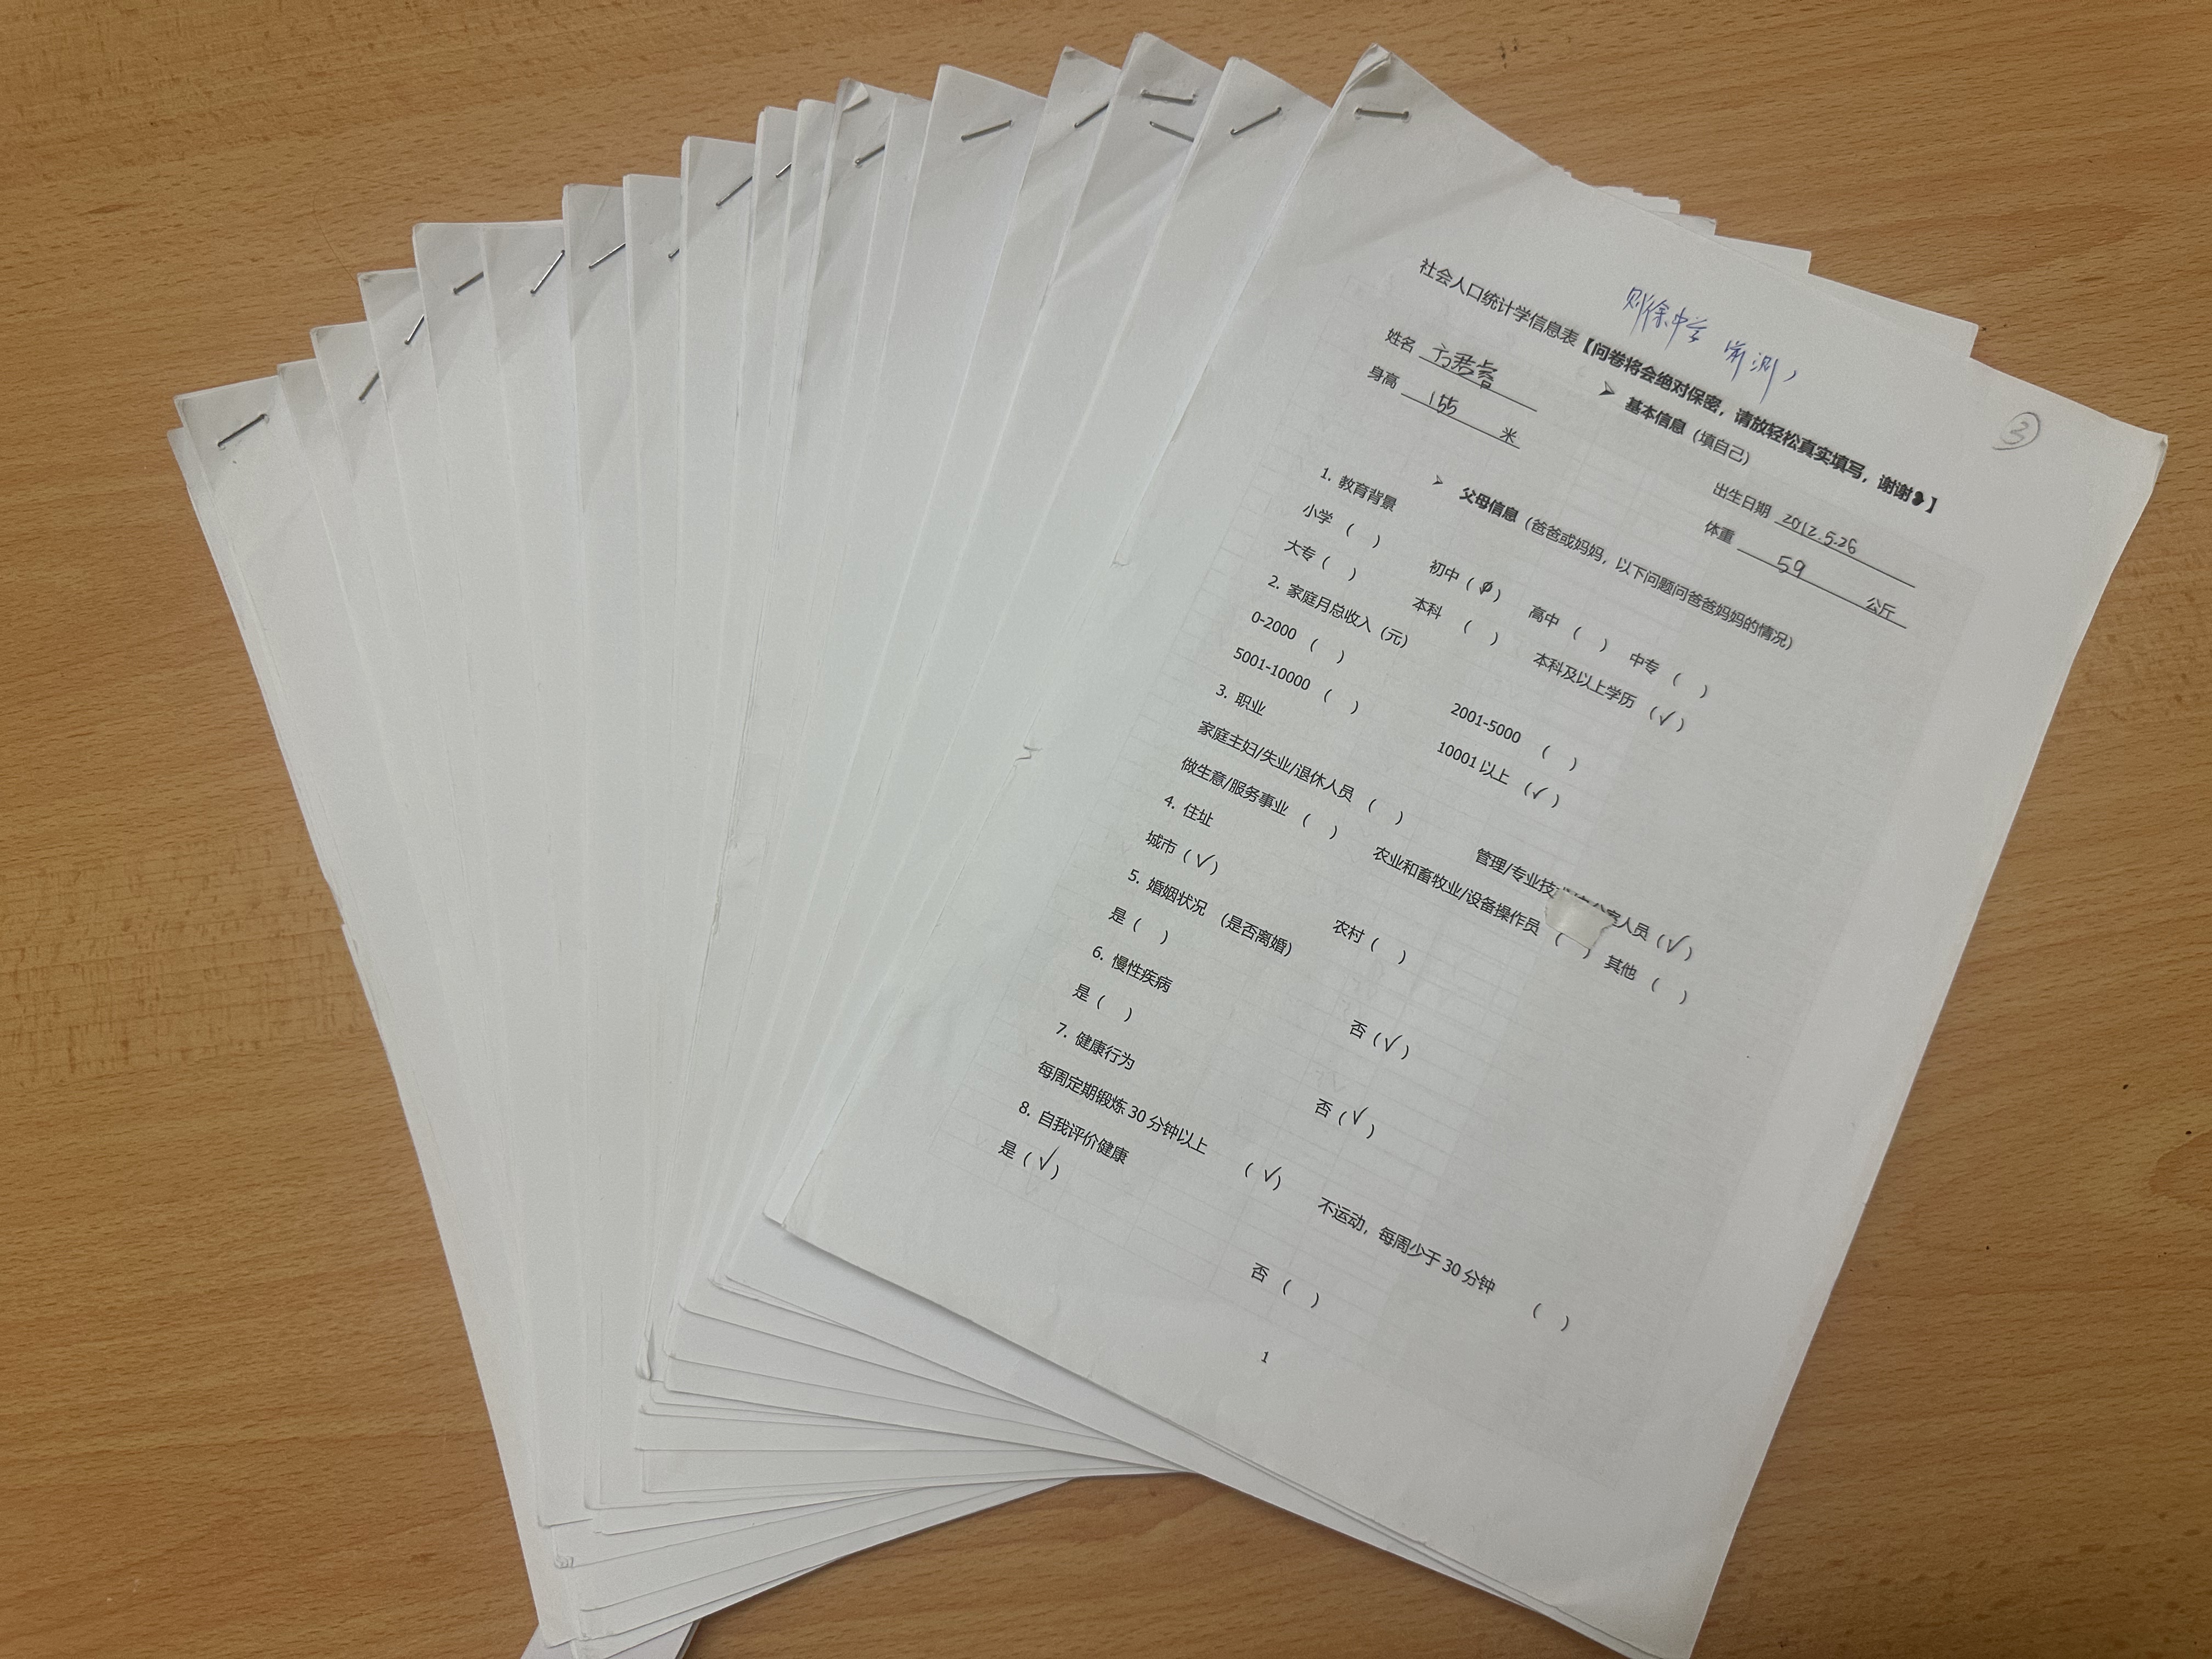 则徐中学 前测
③
社会人口统计学信息表【问卷将会绝对保密，请放轻松真实填写，谢谢】
➢ 基本信息（填自己）
姓名 出生日期 2012.5.26
身高 155 米 体重 59 公斤
➢ 父母信息（爸爸或妈妈，以下问题问爸爸妈妈的情况）
1. 教育背景
小学（ ） 初中（ ） 高中（ ） 中专（ ）
大专（ ） 本科（ ） 本科及以上学历（√）
2. 家庭月总收入（元）
0-2000（ ） 2001-5000（ ）
5001-10000（ ） 10001以上（√）
3. 职业
家庭主妇/失业/退休人员（ ） 管理/专业技 人员（√）
做生意/服务事业（ ） 农业和畜牧业/设备操作员（ ） 其他（ ）
4. 住址
城市（√） 农村（ ）
5. 婚姻状况（是否离婚）
是（ ） 否（√）
6. 慢性疾病
是（ ） 否（√）
7. 健康行为
每周定期锻炼30分钟以上（√） 不运动，每周少于30分钟（ ）
8. 自我评价健康
是（√） 否（ ）
1